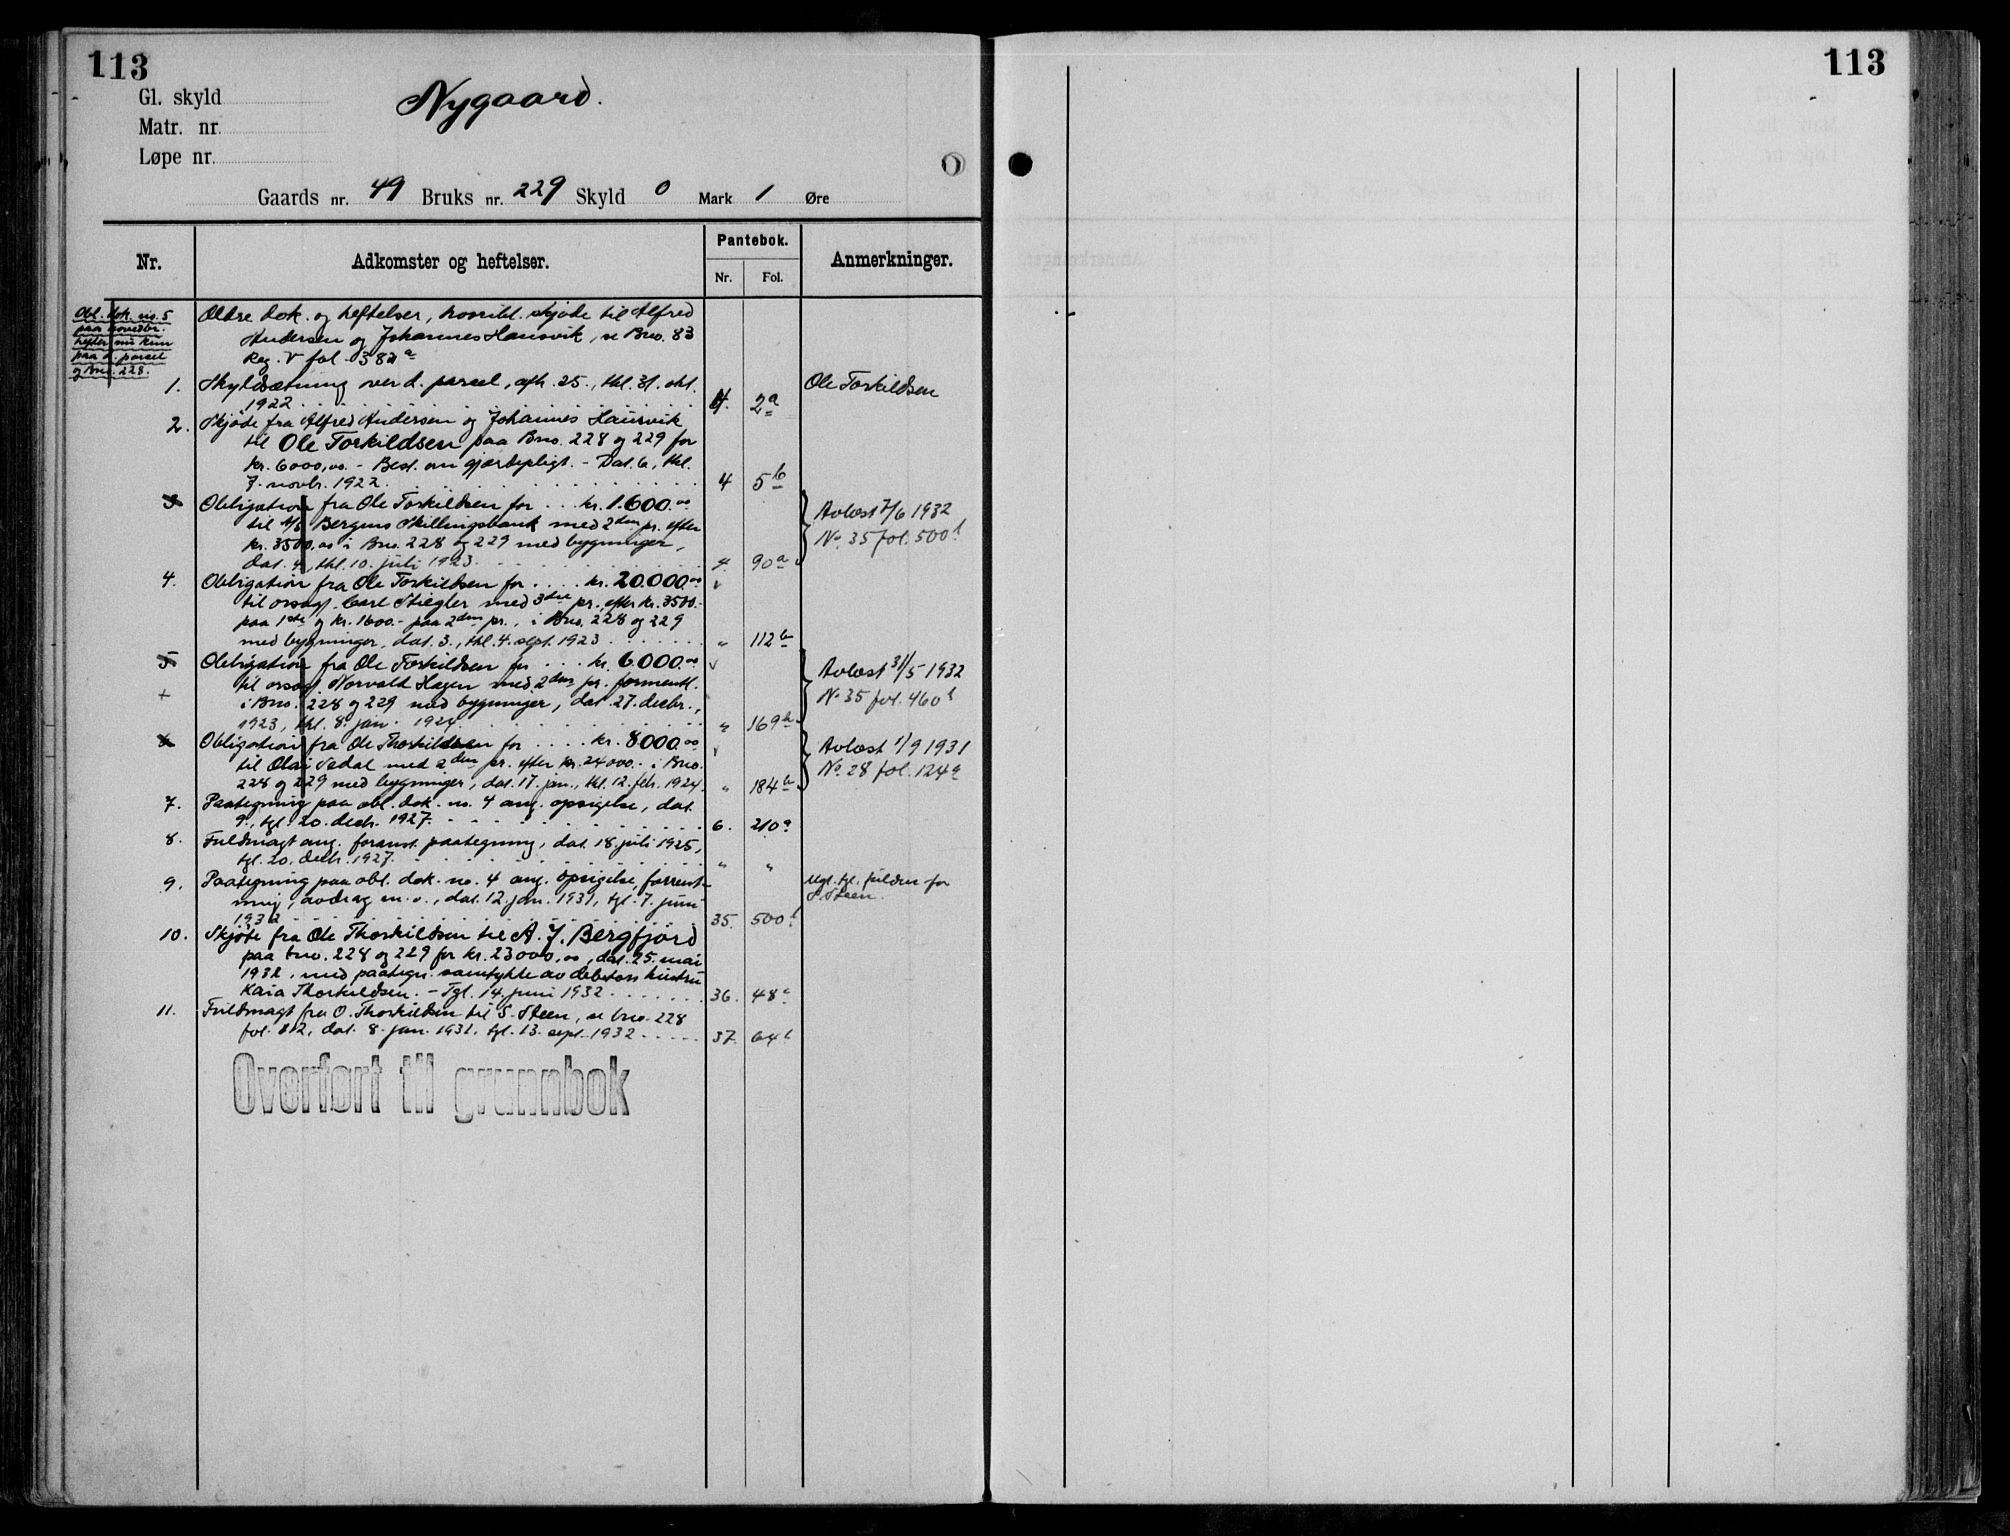 113
Gl. skyld
Matr. nr.
Løpe nr.
Nygaard.
Gaards nr. 49 Bruks nr. 229 Skyld 0 Mark 1 Øre
Nr.
Adkomster og heftelser.
Pantebok.
Nr.
Fol.
Anmerkninger.
Obl. dok. no. 5
paa hovedbr.
hefter nu kun
paa d. parcel
og Bno. 228.
Ældre dok. og heftelser, hvoribl. skjøte til Alfred
Andersen og Johannes Hausvik, se Bno. 83
Reg. V fol. 382 a
1. Skyldsætning over d. parcel, afh. 25., thl. 31. okt.
1922 4. 2a Ole Torkildsen
2. Skjøte fra Alfred Andersen og Johannes Hausvik
til Ole Torkildsen paa Bno. 228 og 229 for
kr. 6000,00. - Best. om gjærdepligt. - Dat. 6., thl.
7. novbr. 1922. 4 5b
3 Obligation fra Ole Torkildsen for ... kr. 1.600.00
til A/S Bergens Skillingsbank med 2den pr. efter
kr. 3500,00 i Bno. 228 og 229 med bygninger,
dat. 4., thl. 10. juli 1923. 4. 90a
Avlæst 7/6 1932
No. 35 fol. 500b
4. Obligation fra Ole Torkildsen for .... kr. 20.000.00
til orsagf. Carl Stiegler med 3die pr., efter kr. 3500.-
paa 1ste og kr. 1600.- paa 2den pr., i Bno. 228 og 229
med bygninger, dat. 3., thl. 4. sept. 1923 " 112b
5 Obligation fra Ole Torkildsen for ... kr. 6000.00
til orsagf. Norvald Hagen med 2den pr. formentl.
+ i Bno. 228 og 229 med bygninger, dat. 27. decbr.,
1923, thl. 8. jan. 1924. " 169b
Avlæst 31/5 1932
No 35 fol. 460b
6 Obligation fra Ole Thorkildsen for .... kr. 8000.00
til Olai Nedal med 2den pr. efter kr. 24000.- i Bno.
228 og 229 med bygninger, dat. 17. jan., thl. 12. febr. 1924. " 184b
Avlæst 1/9 1931
No. 28 fol. 124a
7. Paategning paa obl. dok. no. 4 ang. opsigelse, dat.
9., tgl. 20. decbr. 1927. 6. 210a
8. Fuldmagt ang. foranst. paategning, dat. 18. juli 1925,
tgl. 20. decbr. 1927. " "
9. Paategning paa obl. dok. no. 4 ang. opsigelse, forrent-
ning, avdrag m. v., dat. 12. jan. 1931, tgl. 7. juni
1932 35. 500b
Mgl. tgl. fuldm for
S. Steen.
10. Skjøte fra Ole Thorkildsen til A. J. Bergfjord
paa bno. 228 og 229 for kr. 23000,00, dat. 25. mai
1932, med paategn. samtykke av debitors hustru
Kaia Thorkildsen. - Tgl. 14. juni 1932 36. 48a
11. Fuldmagt fra O. Thorkildsen til S. Steen, se bno. 228
fol. 112, dat. 8. jan. 1931, tgl. 13. sept. 1932 37. 64b
Overført til grunnbok
113